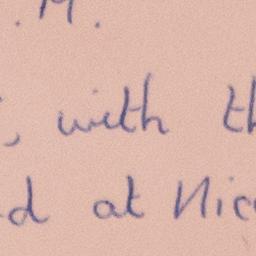 . M.
, with th
d at Nic